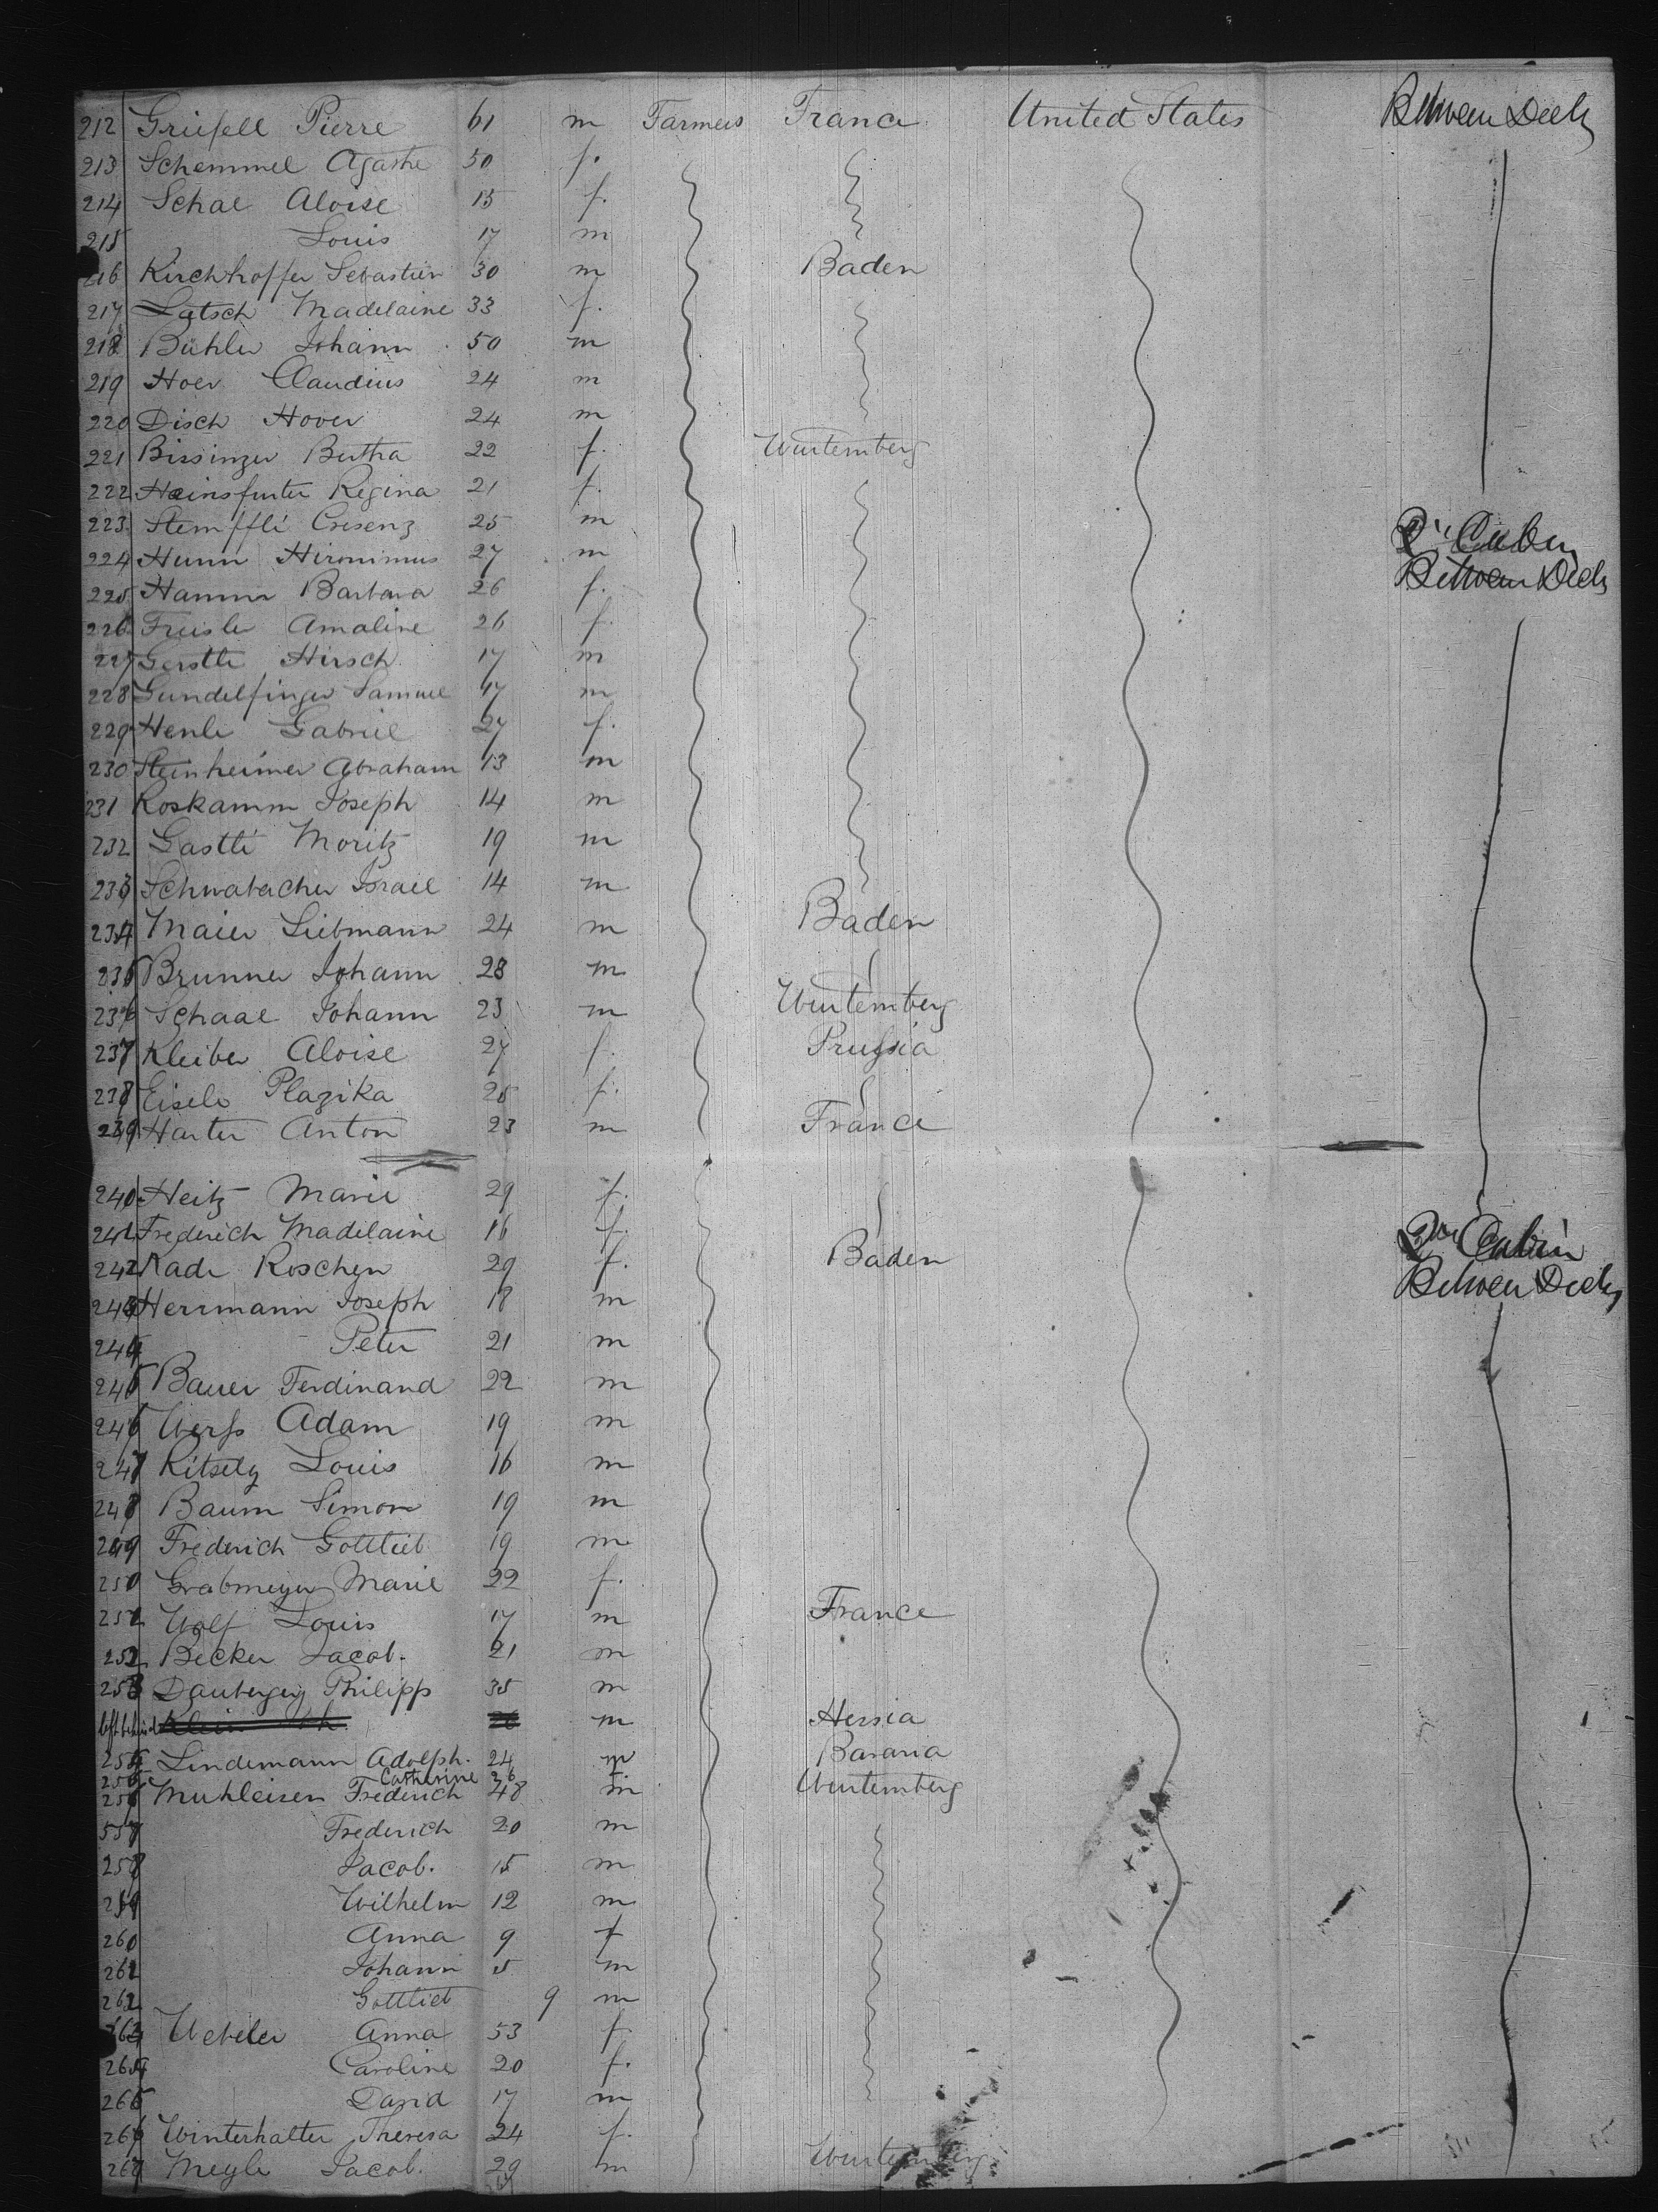 212 Grüsell Pierre 61 m Farmers France United States Between Deck
213 Schemmel Agathe 50 f.
214 Schae Aloise 15 f.
215 Louis 17 m
216 Kirchhoffer Sebastien 30 m Baden
217 Latsch Madelaine 33 f.
218 Bühler Johann 50 m
219 Hoer Claudius 24 m
220 Disch Hover 24 m
221 Bissinger Bertha 22 f. Wurtemberg
222 Heinsfurter Regina 21 f.
223 Stempfli Cresenz 25 m 2d Cabin
224 Hunn Hironimus 27 m Between Deck
225 Hamm Barbara 26 f.
226 Freisle Amaline 26 f.
227 Gerstle Hirsch 17 m
228 Gundelfinger Samuel 17 m
229 Henle Gabriel 27 f.
230 Steinheimer Abraham 13 m
231 Roskamm Joseph 14 m
232 Gastle Moritz 19 m
233 Schwabacher Israel 14 m
234 Maier Liebmann 24 m Baden
235 Brunner Johann 28 m
236 Schaal Johann 23 m Wurtemberg
237 Kleiber Aloise 27 f. Prussia
238 Eisele Plazika 25 f.
239 Harter Anton 23 m France
240 Heitz Marie 29 f.
241 Frederich Madelaine 16 f. 2d Cabin
242 Kade Roschen 29 f. Baden Between Deck
243 Herrmann Joseph 18 m
244 Peter 21 m
245 Bauer Ferdinand 22 m
246 Werss Adam 19 m
247 Kitsely Louis 16 m
248 Baum Simon 19 m
249 Frederich Gottlieb 19 m
250 Grabmeyer Marie 22 f.
251 Wolf Louis 17 m France
252 Becker Jacob. 21 m
253 Philipp 35 m
left behind Klein m Hessia
254 Lindemann Adolph. 24 m Bavaria
255 Catherine 26 f
256 Muhleisen Frederich 48 m Wurtemberg
557 Frederich 20 m
258 Jacob. 15 m
259 Wilhelm 12 m
260 Anna 9 f
261 Johann 5 m
262 Gottlieb 9 m
263 Uebeler Anna 53 f.
264 Caroline 20 f.
265 David 17 m
266 Winterhalter Theresa 24 f.
267 Meyle Jacob. 29 m Wurtemberg